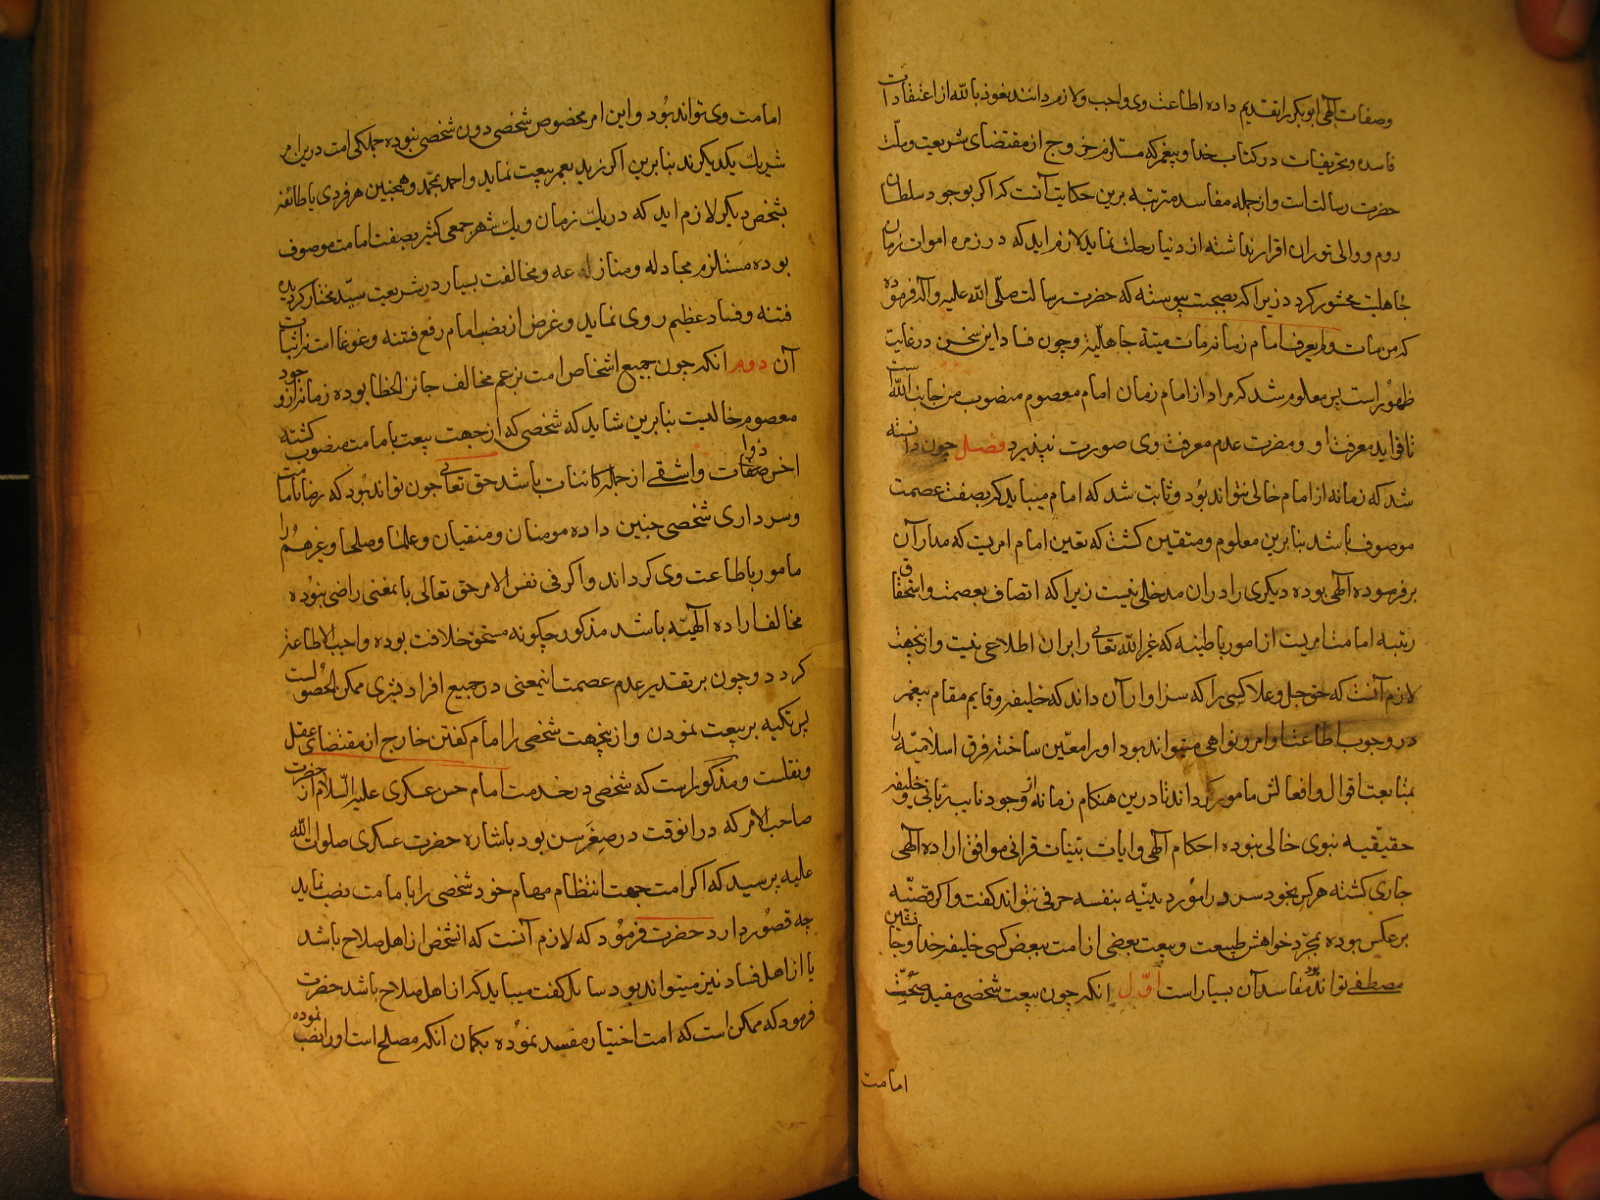 وصفات الهی ابوبکر را تقدیم داده اطاعت وی واجب و لازم دانند نعوذ بالله از اعتقادات
فاسده و تحریفات در کتاب خدا و پیغمبر که مستلزم خروج از مقتضای شریعت و ملت
حضرت رسالت است و از جمله مفاسد مترتبه برین حکایت آنست که اگر بوجود سلطان
روم و والی توران اقرار نداشته از دنیا رحلت نماید لازم اید که در زمره اموات زمان
جاهلیت محشور کردد زیرا که بصحت پیوسته که حضرت رسالت صلی الله علیه وآله فرموده
که من مات ولم یعرف امام زمانه مات میتة جاهلیة و چون فساد این سخن در غایت
ظهور است پس معلوم شد که مراد از امام زمان امام معصوم منصوب من جانب الله است
تا فواید معرفت او و مضرت عدم معرفت وی صورت پذیرد فصل چون دانسته
شد که زمانه از امام خالی نتواند بود و ثابت شد که امام میباید که بصفت عصمت
موصوف باشد بنا برین معلوم و متیقن کشت که تعین امام امریست که مدار آن
بر فرموده الهی بوده دیکری را در ان مدخلی نیست زیرا که اتصاف بعصمت و استحقاق
رتبه امامت امریست از امور باطنیه که غیر الله تعالی را بران اطلاعی نیست و ازینجهت
لازم آنست که حق جل وعلا کسی را که سزاوار آن داند که خلیفه و قایم مقام پیغمبر
در وجوب اطاعت و امر و نواهی میتواند بود او را معین ساخته فرق اسلامیه را
بمتابعت اقوال و افعالش مامور کرداند تا درین هنکام زمانه از وجود نایب ربانی و خلیفه
حقیقیه نبوی خالی نبوده احکام الهی و ایات بینات قرانی موافق اراده الهی
جاری کشته هرکس بخود سر در امور دینیه بنفسه حرفی نتواند کفت و اکر قضیه
برعکس بوده بمجرد خواهش طبیعت و بیعت بعضی از امت ببعض کسی خلیفه خدا و جانشین
مصطفی تواند بود مفاسد آن بسیار است اول انکه چون بیعت شخصی مفید صحت
امامت
امامت وی تواند بود و این امر مخصوص شخصی دون شخصی نبوده جملکی امت درین امر
شریک یکدیکرند بنا برین اکر زید بعمر بیعت نماید و احمد بمحمد و همچنین هر فردی یا طائفه
بشخص دیکر لازم اید که در یک زمان و یک شهر جمعی کثیر بصفت امامت موصوف
بوده مستلزم مجادله و منازعه و مخالفت بسیار در شریعت سید مختار کردیده
فتنه و فساد عظیم روی نماید و غرض از نصب امام رفع فتنه و غوغا است نه اثبات
آن دوم انکه چون جمیع اشخاص امت بزعم مخالف جائز الخطا بوده زمانه از وجود
معصوم خالیست بنا برین شاید که شخصی که از جهت بیعت بامامت منصوب کشته
اخس ذوات و اشقی از جمله کائنات باشد حق تعالی چون تواند بود که رضا بامامت
و سرداری شخصی چنین داده مومنان و متقیان و علما و صلحا و غیرهم را
مامور باطاعت وی کرداند و اکر فی نفس الامر حق تعالی بانمعنی راضی نبوده
مخالف اراده الهیه باشد مذکور چکونه مستحق خلافت بوده واجب الاطاعة
کردد و چون بر تقدیر عدم عصمت اینمعنی در جمیع افراد بشری ممکن الحصول است
پس تکیه بر بیعت نمودن و ازینجهت شخصی را امام کفتن خارج از مقتضای عقل
و نقلست و مذکور است که شخصی در خدمت امام حسن عسکری علیه السلام از حضرت
صاحب الامر که در انوقت در صغر سن بود باشاره حضرت عسکری صلوات الله
علیه پرسید که اکر امت جهت انتظام مهام خود شخصی را بامامت نصب نماید
چه قصور دارد حضرت فرمود که لازم آنست که انشخص از اهل صلاح باشد
یا از اهل فساد نیز میتواند بود سایل کفت میباید که از اهل صلاح باشد حضرت
فرمود که ممکن است که امت اختیار مفسد نموده بکمان انکه مصلح است او را نصب نموده